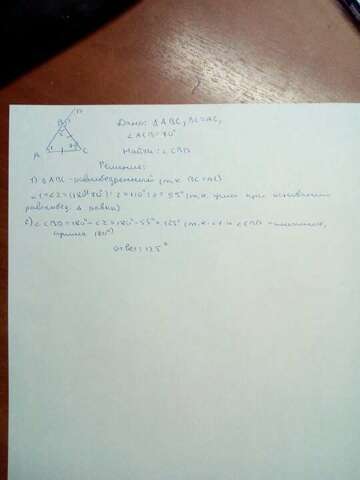 D
B
2
A 1 C
Дано: ΔABC, BC=AC,
∠ACB=70°
Найти: ∠CBD
Решение:
1) ΔABC - равнобедренный (т.к. BC=AC)
∠1=∠2=(180°-70°):2=110°:2=55° (т.к. углы при основании
равнобед. Δ равны)
2) ∠CBD=180°-∠2=180°-55°=125° (т.к. и ∠CBD - смежные,
180°)
ответ: 125°